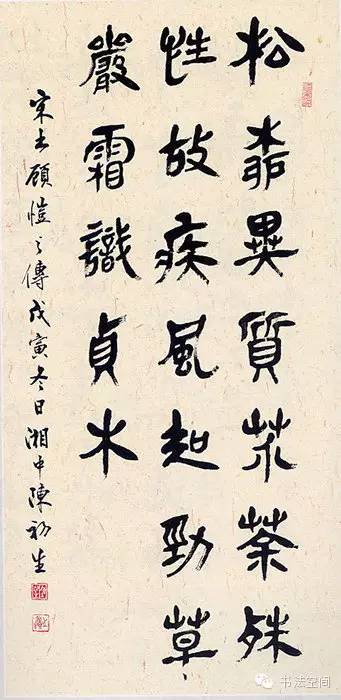 松異質荼殊
性故疾風知勁草、
嚴霜識貞木
宋书顧愷之傳戊寅冬日湘中陳初生
书法空间